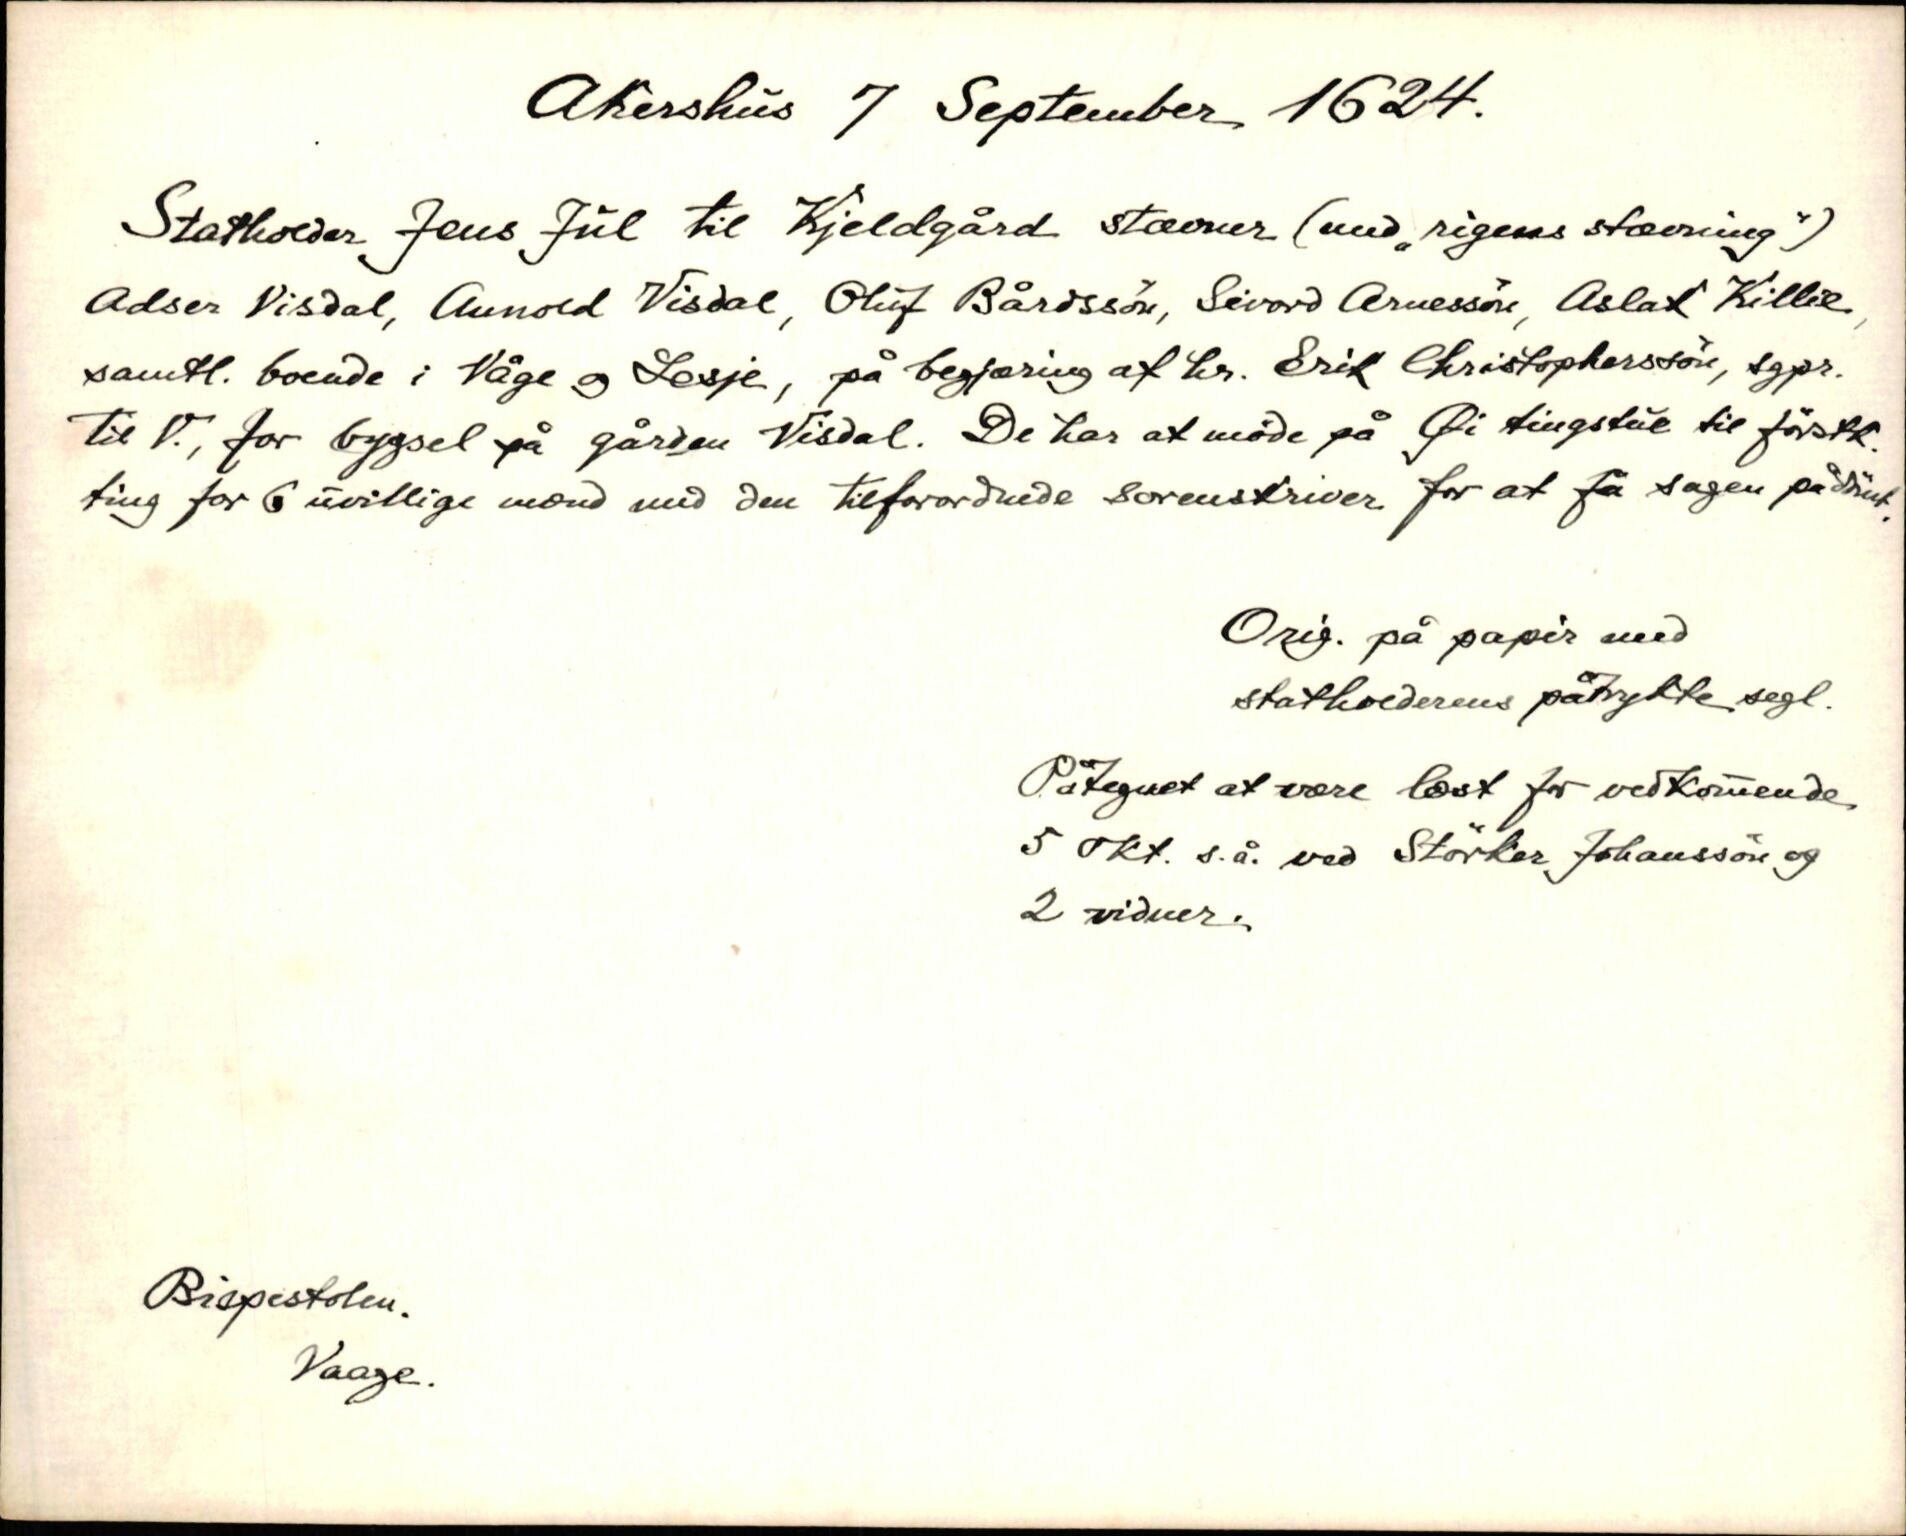 Akershus 7 September 1624.
Statholder Jens Jul til Kjeldgård stævner (med „rigens stævning")
Adser Visdal, Aunold Visdal, Oluf Bårdssön, Sivord Arnessön, Aslak Killie,
samtl. boende i Våge og Lesje, på begjæring af hr. Erik Christopherssön, sgpr.
til V., for bygsel på gården Visdal. De har at möde på Øi tingstue til förstk.
ting for 6 uvillige mænd med den tilforordnede sorenskriver for at få sagen pådömt.
Orig. på papir med
statholderens påtrykte segl.
Påtegnet at være læst for vedkom̅ende
5 Okt. s.å. ved Störker Johanssön og
2 vidner.
Bispestolen.
Vaage.